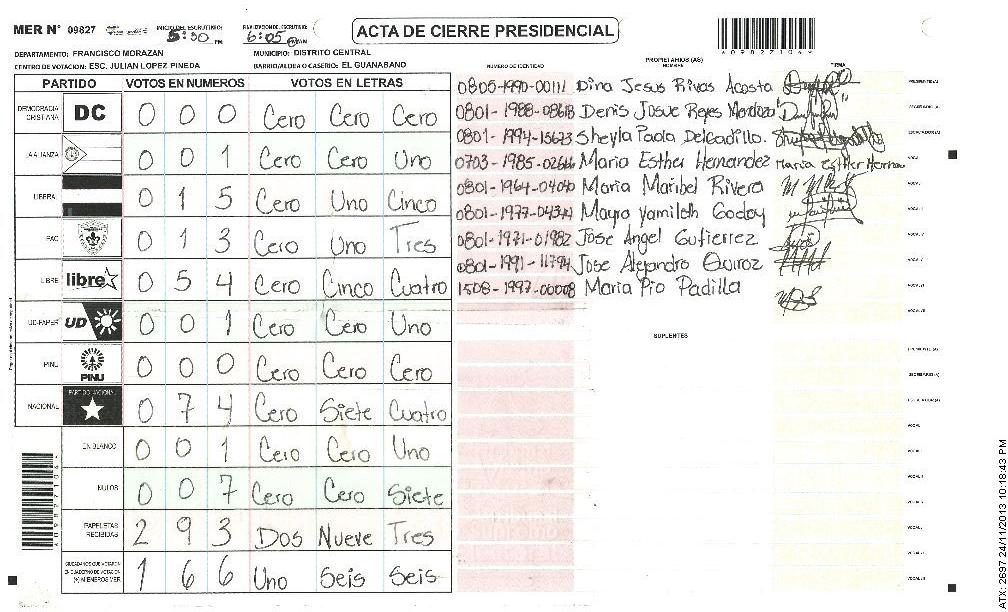 MER N° 09827 INICIO DEL ESCRUTINIO: 5:30 PM FINALIZACION DEL ESCRUTINIO: 6:05 AM
ACTA DE CIERRE PRESIDENCIAL
DEPARTAMENTO: FRANCISCO MORAZAN MUNICIPIO: DISTRITO CENTRAL
CENTRO DE VOTACION: ESC. JULIAN LOPEZ PINEDA BARRIO/ALDEA O CASERIO: EL GUANABANO
PARTIDO VOTOS EN NUMEROS VOTOS EN LETRAS
DEMOCRACIA CRISTIANA DC 0 0 0 Cero Cero Cero
LA ALIANZA 0 0 1 Cero Cero Uno
LIBERAL 0 1 5 Cero Uno Cinco
PAC 0 1 3 Cero Uno Tres
LIBRE libre 0 5 4 Cero Cinco Cuatro
UD-FAPER UD 0 0 1 Cero Cero Uno
PINU PINU 0 0 0 Cero Cero Cero
NACIONAL PARTIDO NACIONAL 0 7 4 Cero Siete Cuatro
EN BLANCO 0 0 1 Cero Cero Uno
NULOS 0 0 7 Cero Cero Siete
PAPELETAS RECIBIDAS 2 9 3 Dos Nueve Tres
CIUDADANOS QUE VOTARON EN CUADERNO DE VOTACION (+) MIEMBROS MER 1 6 6 Uno Seis Seis
PROPIETARIOS (AS)
NUMERO DE IDENTIDAD NOMBRE FIRMA
0805-1990-00111 Dina Jesus Rivas Acosta
0801-1988-08618 Denis Josue Reyes Mendoza
0801-1994-15673 Sheyla Paola Delgadillo.
0703-1985-02646 Maria Esther Hernandez Maria Esther Hernan
0801-1964-04040 Maria Maribel Rivera
Mayra Yamileth Godoy
0801-1971-01982 Jose Angel Gutierrez
0801-1991-11794 Jose Alejandro Quiroz
1508-1997-00008 Maria Pio Padilla
SUPLENTES
ATX: 2697 24/11/2013 10:18:43 PM